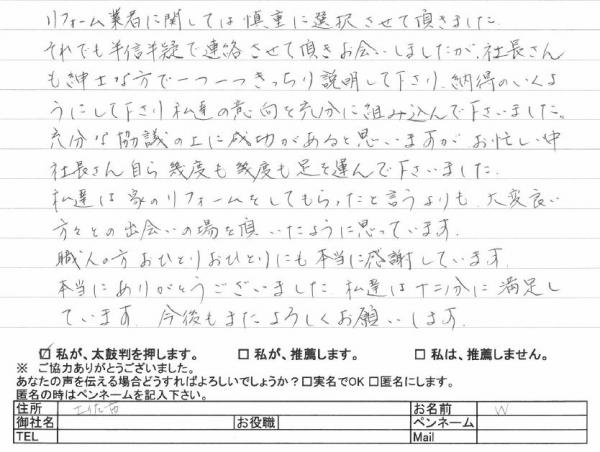 リフォーム業者に関しては慎重に選択させて頂きました。
それでも半信半疑で連絡させて頂きお会いしましたが、社長さん
も紳士な方で一つ一つきっちり説明して下さり、納得のいくよ
うにして下さり私達の意向を充分に組み込んで下さいました。
充分な協議の上に成功があると思いますが、お忙しい中
社長さん自ら幾度も幾度も足を運んで下さいました。
私達は家のリフォームをしてもらったと言うよりも、大変良い
方々との出会いの場を頂いたように思っています。
職人の方おひとりおひとりにも本当に感謝しています。
本当にありがとうございました。私達は十二分に満足し
ています。今後もまたよろしくお願いします。
☑ 私が、太鼓判を押します。 ☐ 私が、推薦します。 ☐ 私は、推薦しません。
※ ご協力ありがとうございました。
あなたの声を伝える場合どうすればよろしいでしょうか？☐実名でOK ☐匿名にします。
匿名の時はペンネームを記入下さい。
住所 土佐市 お名前 W
御社名 お役職 ペンネーム
TEL Mail